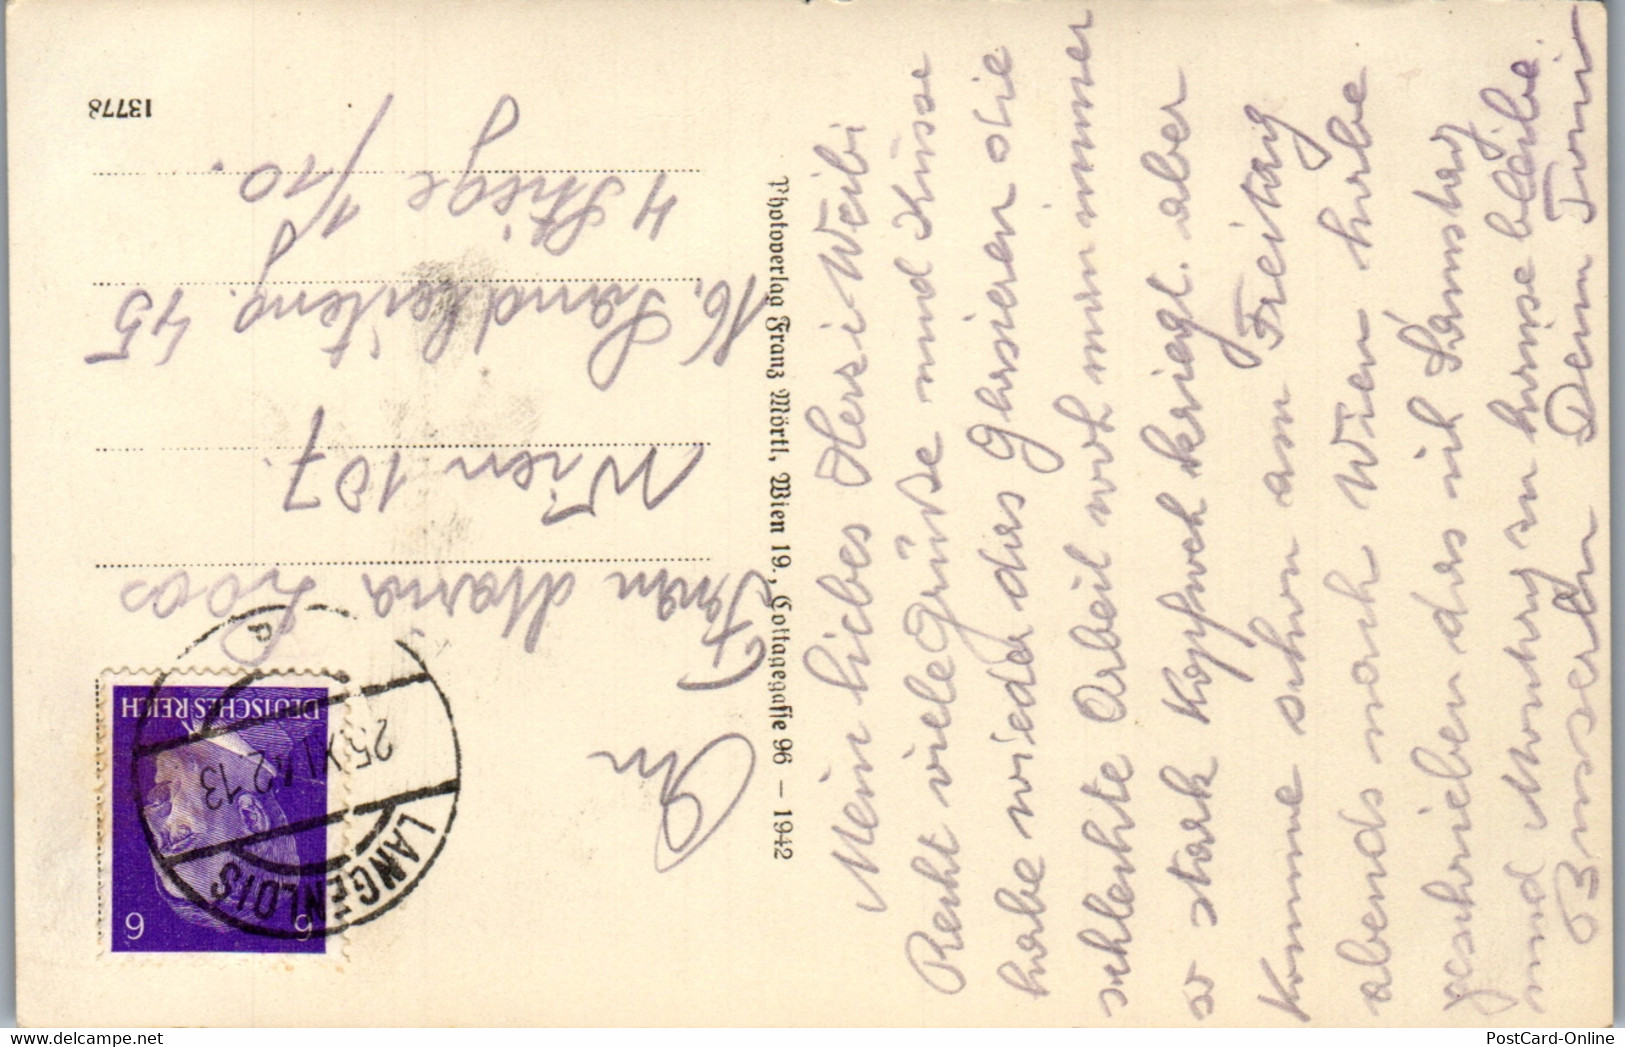 Mein liebes Hersi Weibi
Recht viele Grüße und Küsse
habe wieder das Glasieren die
schlechte Arbeit wo man immer
so stark Kopfweh kriegt. aber
Komme schon am Freitag
abends nach Wien habe
geschrieben das ich Samstag
und Montag zu hause bleibe.
Busserln Dein Toni
Photoverlag Franz Mörtl, Wien 19., Cottagegasse 96 – 1942
DEUTSCHES REICH
6 6
LANGENLOIS
25.XI.42.13
An
Frau Maria Loos
Wien 107.
16. Sandleiteng. 45
4 Stiege 1/10.
13778
PostCard-Online